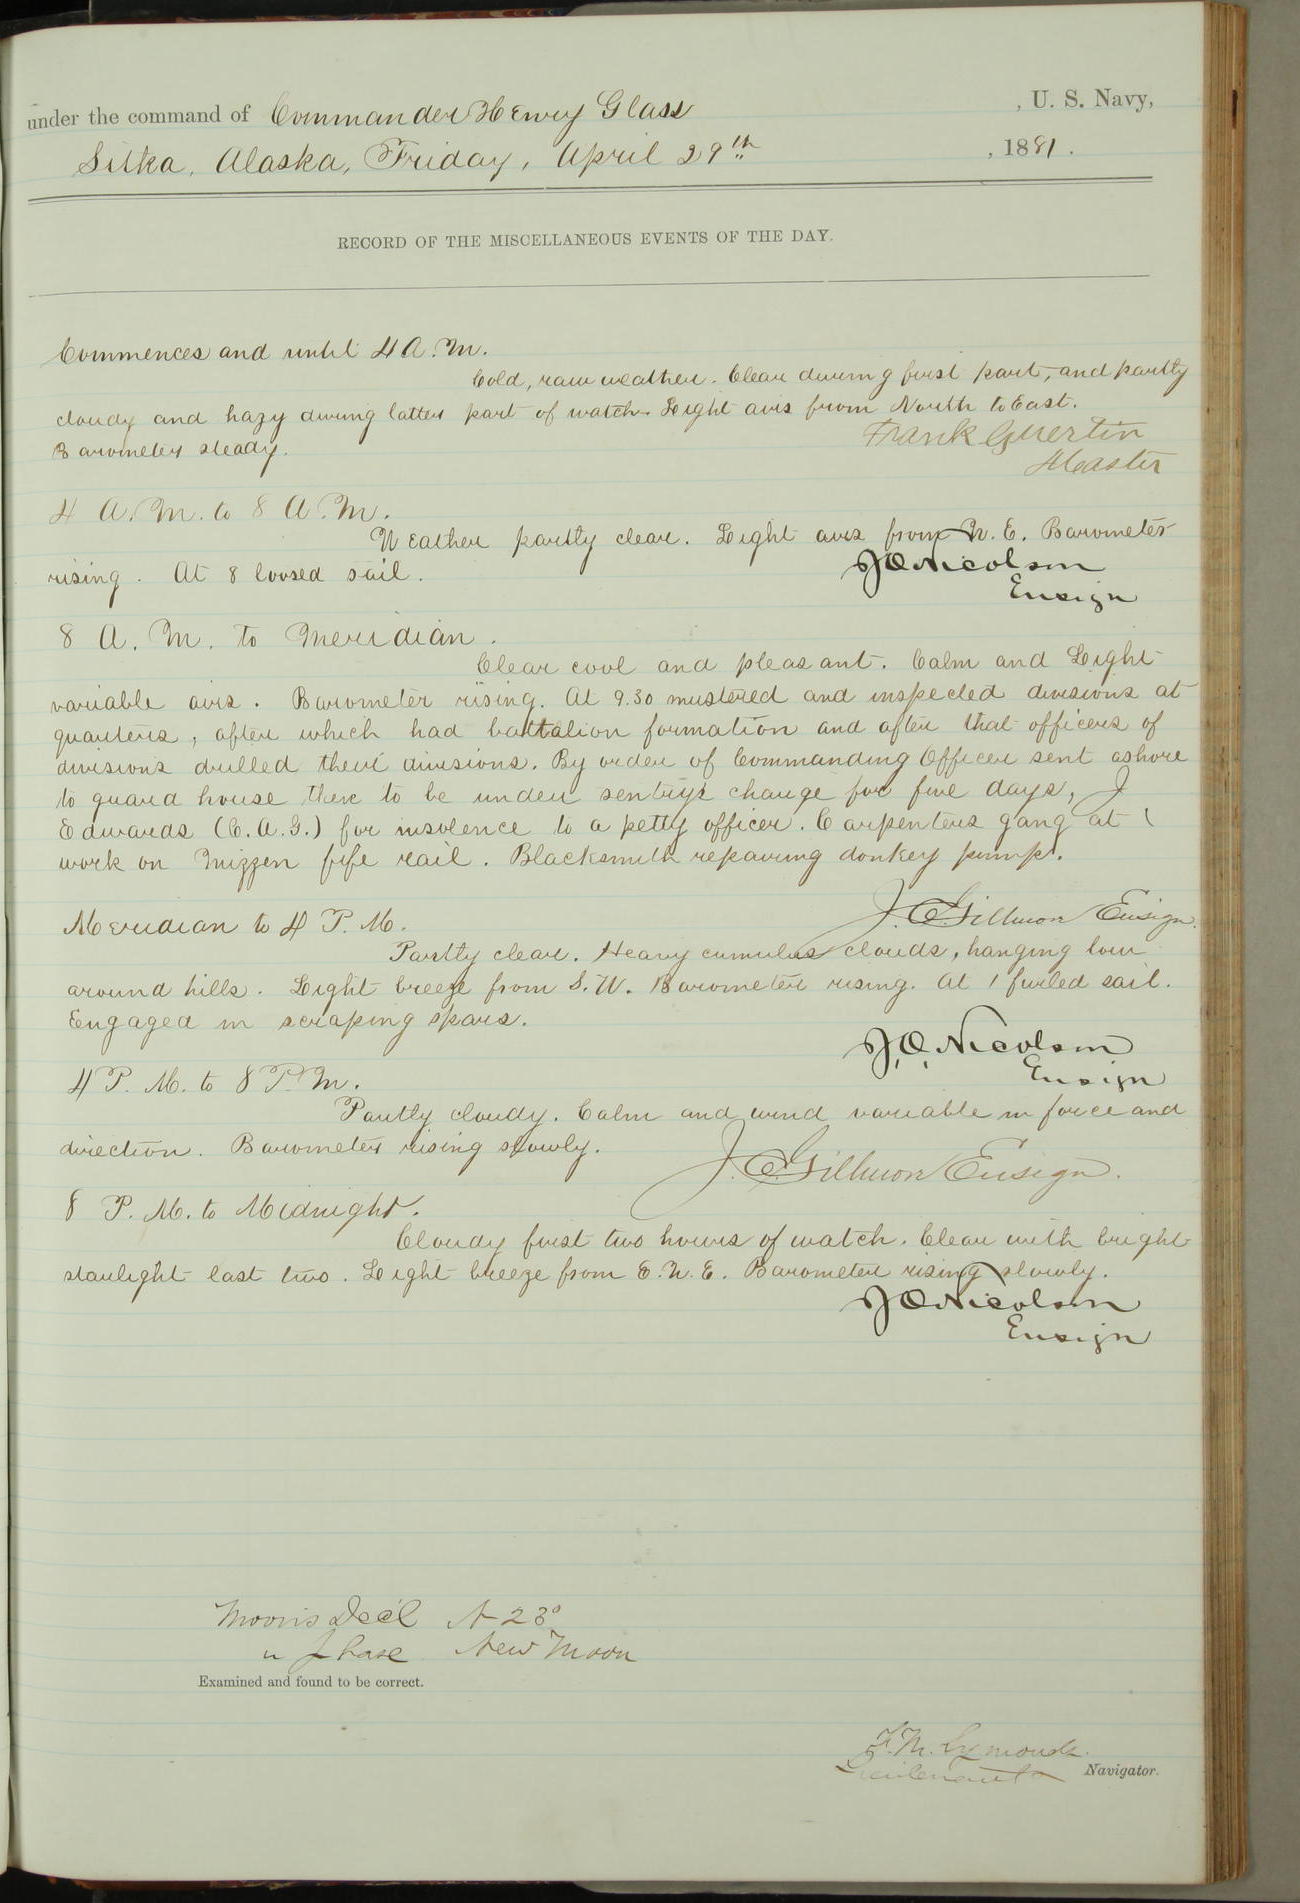 under the command of Commander Henry Glass , U. S. Navy,
Sitka, Alaska, Friday, April 29th , 1881.
RECORD OF THE MISCELLANEOUS EVENTS OF THE DAY.
Commences and until 4 A.M.
Cold, raw weather. Clear during first part, and partly
cloudy and hazy during latter part of watch. Light airs from North to East.
Barometer steady.
Frank Guertin
Master
4 A.M. to 8 A.M.
Weather partly clear. Light airs from N.E. Barometer
rising. At 8 loosed sail.
J O Nicolson
Ensign
8 A.M. to Meridian.
Clear cool and pleasant. Calm and Light
variable airs. Barometer rising. At 9.30 mustered and inspected divisions at
quarters, after which had battalion formation and after that officers of
divisions drilled their divisions. By order of Commanding Officer sent ashore
to guard house there to be under sentry's charge for five days, J
Edwards (C.A.G.) for insolence to a petty officer. Carpenters gang at
work on Mizzen fife rail. Blacksmith repairing donkey pump.
J. C. Gillmore Ensign.
Meridian to 4 P.M.
Partly clear. Heavy cumulus clouds, hanging low
around hills. Light breeze from S.W. Barometer rising. At 1 furled sail.
Engaged in scraping spars.
J. O. Nicolson
Ensign
4 P.M. to 8 P.M.
Partly cloudy. Calm and wind variable in force and
direction. Barometer rising slowly.
J. C. Gillmore Ensign.
8 P.M. to Midnight.
Cloudy first two hours of watch. Clear with bright
starlight last two. Light breeze from E.N.E. Barometer rising slowly.
J O Nicolson
Ensign
Moon's Decl N 23°
" Phase New Moon
Examined and found to be correct.
F. M. Symonds
Lieutenant Navigator.